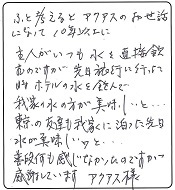 ふと考えるとアクアスのお世話
になって10年以上に
主人がいつも水を直接飲
むのですが先日旅行に行った
時ホテルの水を飲んで
我家の水の方が美味しいと…
東京の友達も我家に泊った先日
水が美味しいッと…
普段何も感じなかったのですが
感謝しています アクアス様